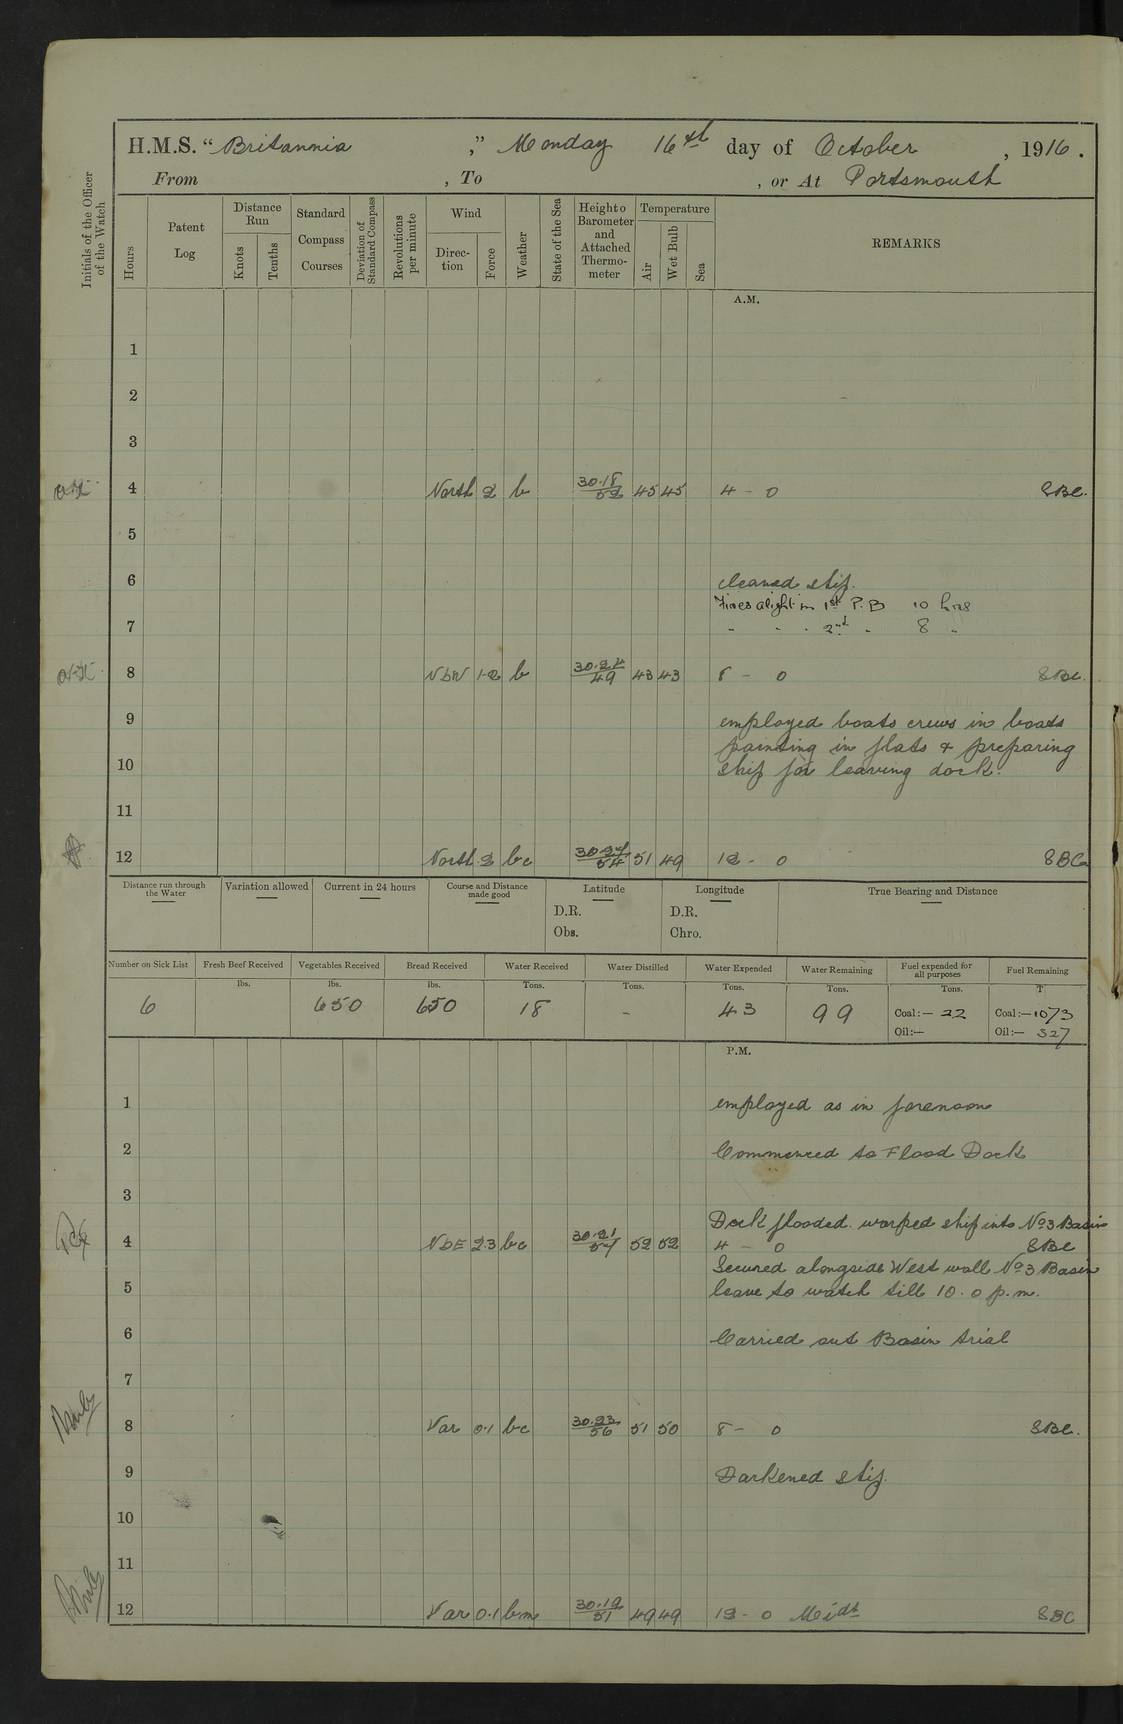 H.M.S. “Britannia ,” Monday 16th day of October , 1916 .
From , To , or At Portsmouth
Initials of the Officer of the Watch
Hours
Patent Log
Distance Run
Knots
Tenths
Standard Compass Courses
Deviation of Standard Compass
Revolutions per minute
Wind
Direc-tion
Force
Weather
State of the Sea
Height o Barometer and Attached Thermo-meter
Temperature
Air
Wet Bulb
Sea
REMARKS
A.M.
1
2
3
4 North 2 b 30.18/52 45 45 4 - 0 SBC.
5
6 cleaned ship.
Fires alight in 1st P.B 10 hrs
7 " " " 2nd " 8 "
8 NbW 1-2 b 30.24/49 43 43 8 - 0 SBC.
9 employed boats crews in boats
painting in flats & preparing
10 ship for leaving dock.
11
12 North 2 bc 30.27/54 51 49 12 - 0 SBC
Distance run through the Water
Variation allowed
Current in 24 hours
Course and Distance made good
Latitude
D.R.
Obs.
Longitude
D.R.
Chro.
True Bearing and Distance
Number on Sick List
Fresh Beef Received
Vegetables Received
Bread Received
Water Received
Water Distilled
Water Expended
Water Remaining
Fuel expended for all purposes
Fuel Remaining
lbs. lbs. lbs. Tons. Tons. Tons. Tons. Tons. T
6 650 650 18 - 43 99 Coal:— 22 Coal:—1073
Oil:— Oil:— 327
P.M.
1 employed as in forenoon
2 Commenced to Flood Dock
3
Dock flooded. warped ship into No 3 Basin
4 NbE 2.3 bc 30.21/57 52 52 4 - 0 SBC
Secured alongside West wall No 3 Basin
5 leave to watch till 10.0 p.m.
6 Carried out Basin trial
7
8 Var 0.1 bc 30.23/56 51 50 8 - 0 SBC.
9 Darkened ship.
10
11
12 Var 0.1 bm 30.19/51 49 49 12 - 0 Midt SBC